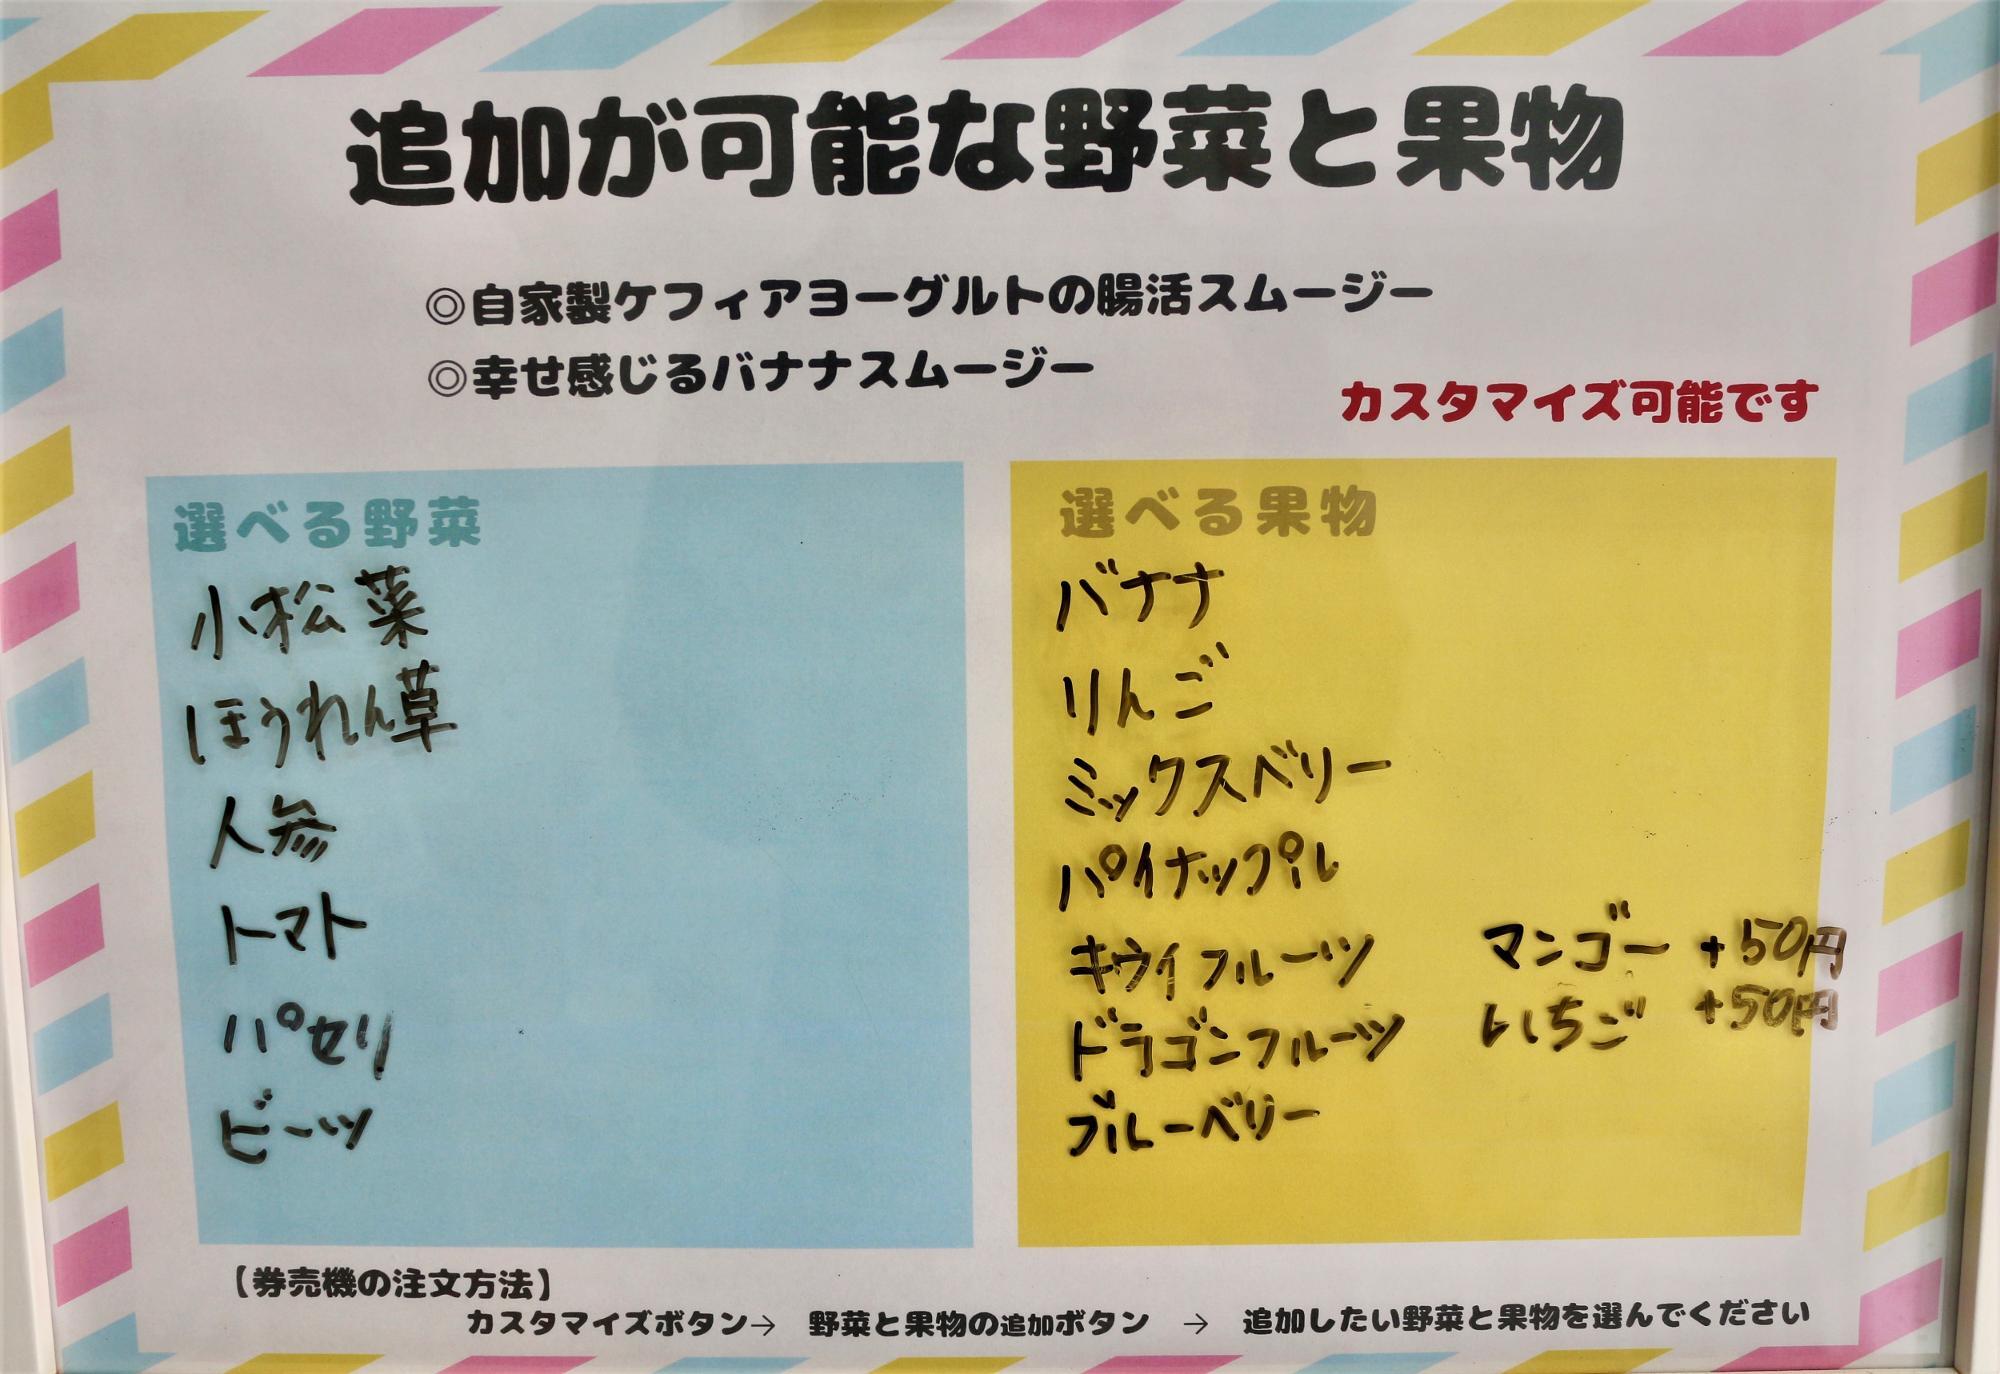 追加が可能な野菜と果物
◎自家製ケフィアヨーグルトの腸活スムージー
◎幸せ感じるバナナスムージー
カスタマイズ可能です
選べる野菜
小松菜
ほうれん草
人参
トマト
パセリ
ビーツ
選べる果物
バナナ
りんご
ミックスベリー
パイナップル
キウイフルーツ
ドラゴンフルーツ
ブルーベリー
マンゴー +50円
いちご +50円
【券売機の注文方法】
カスタマイズボタン→ 野菜と果物の追加ボタン → 追加したい野菜と果物を選んでください